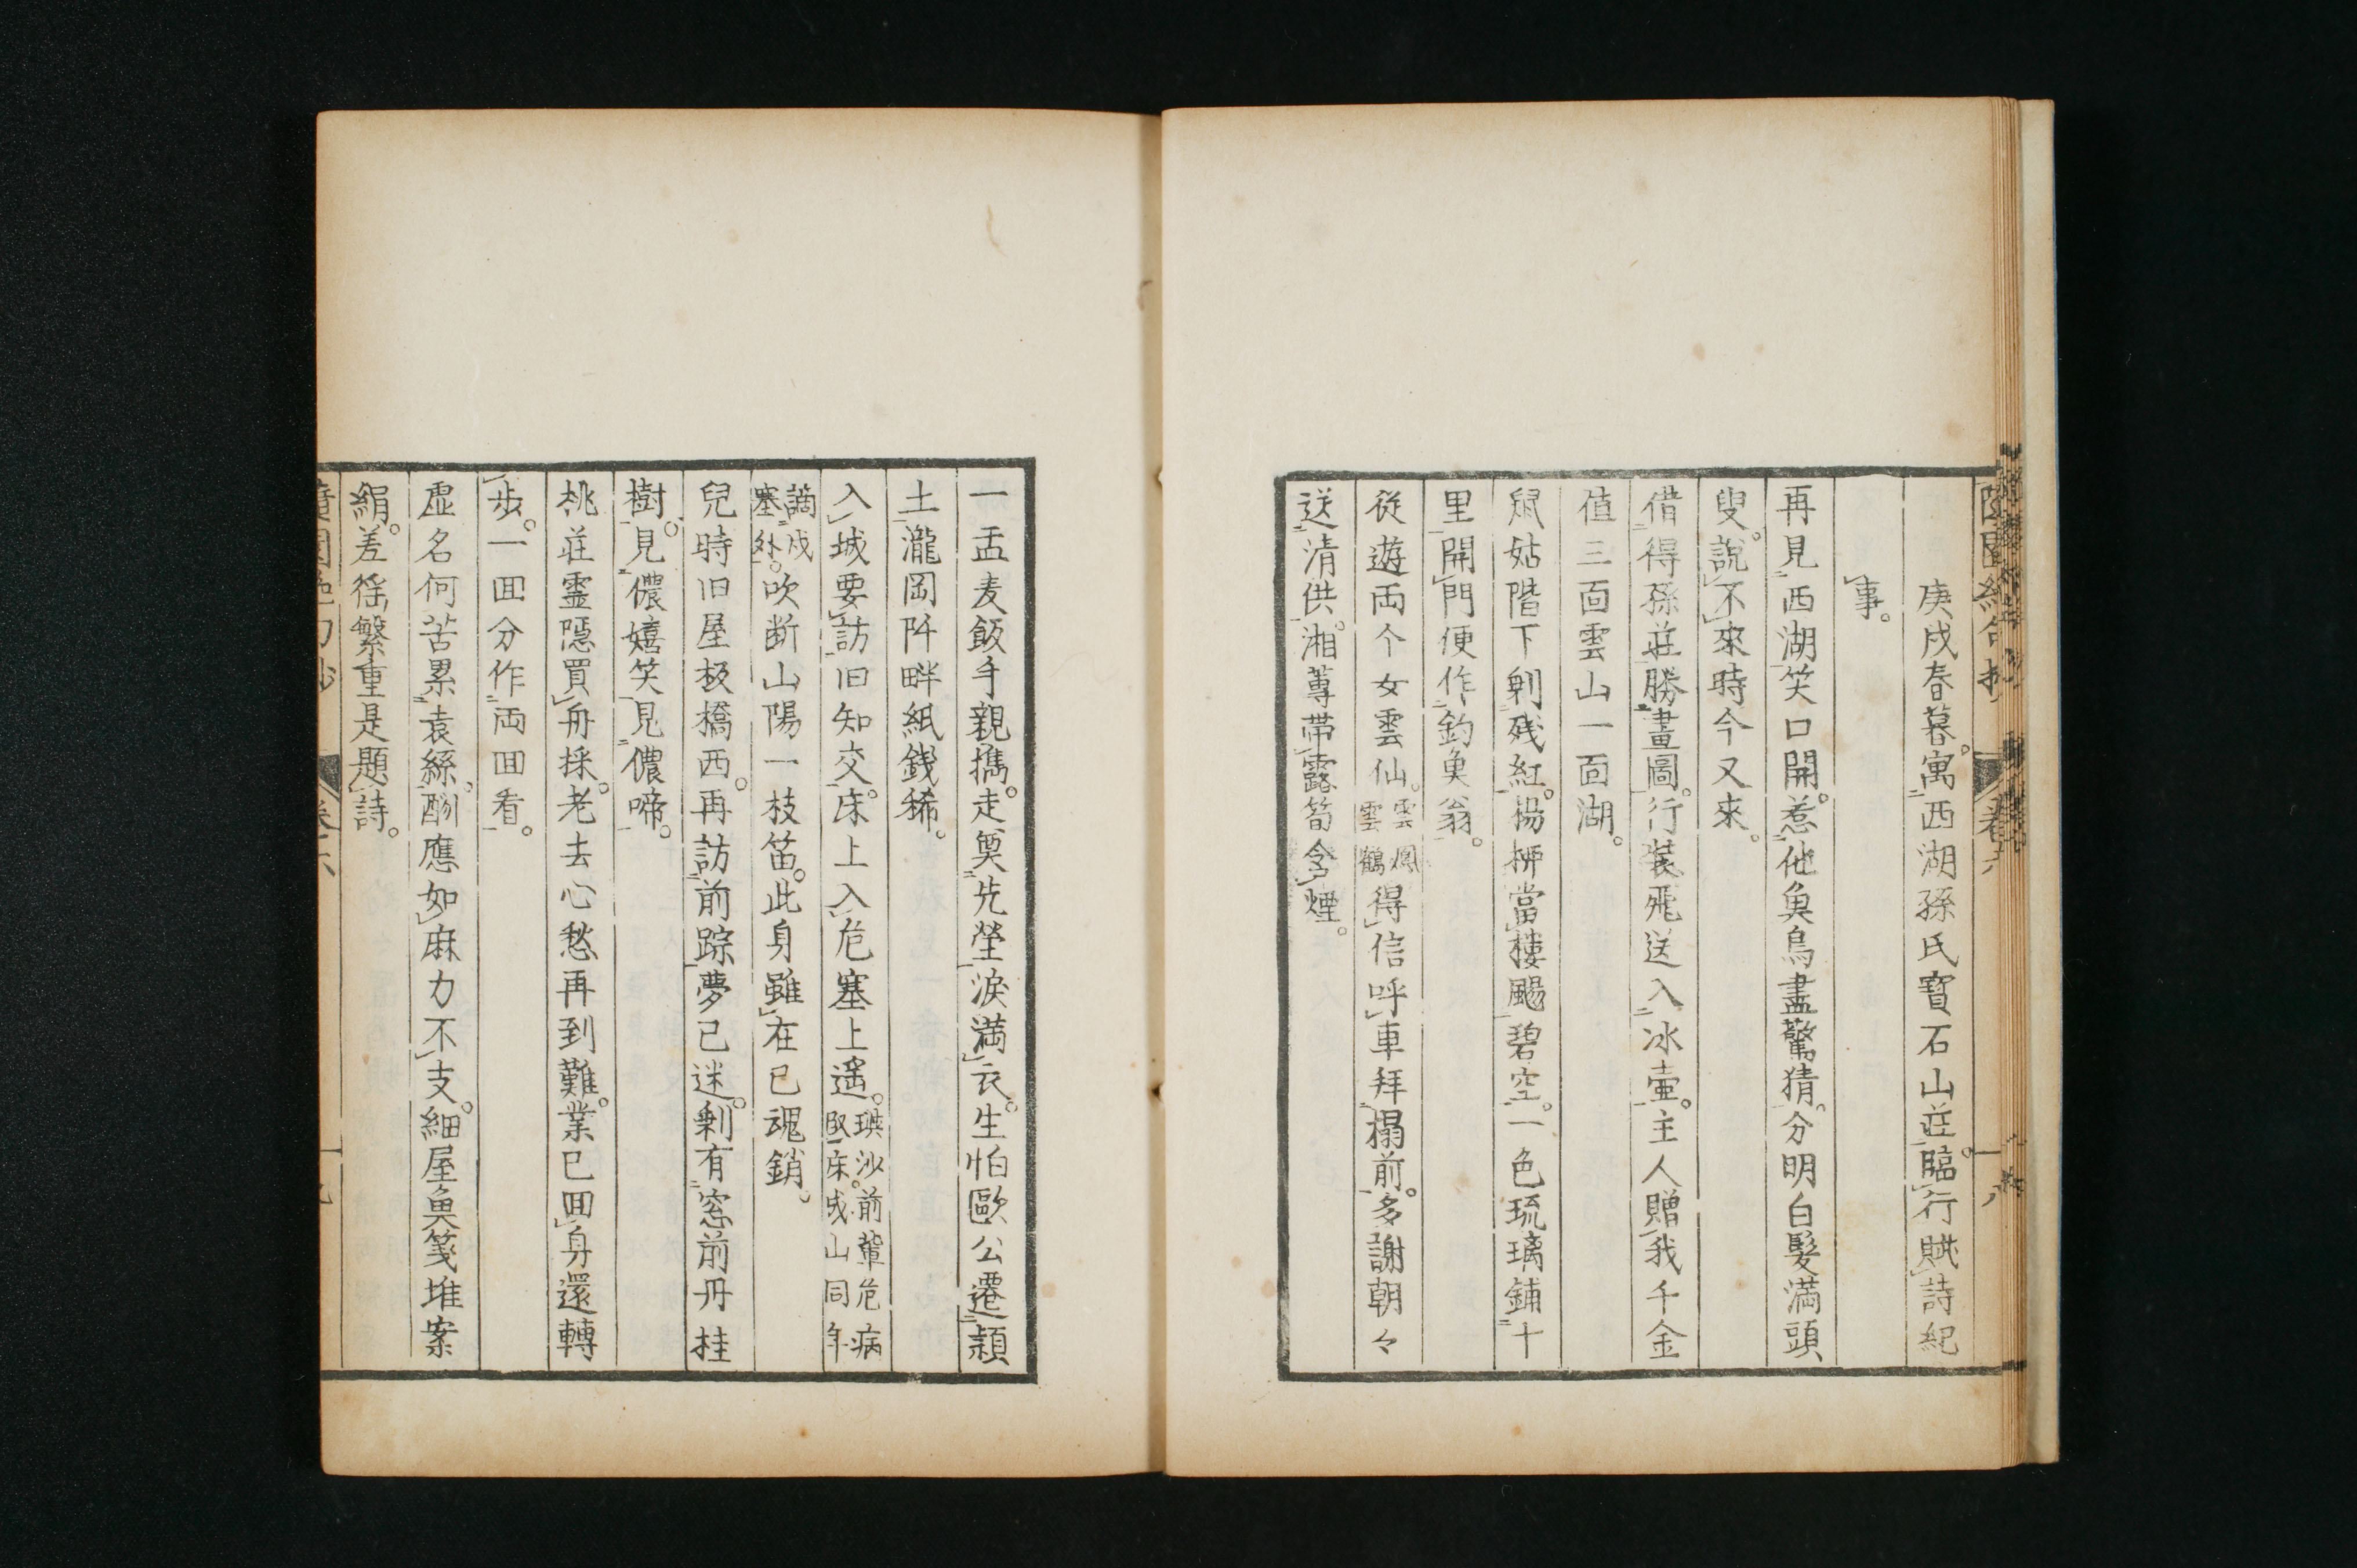 隨園絶句抄 卷六 一八
庚戌春暮。寓西湖孫氏寶石山莊。臨行賦詩紀
事。
再見西湖笑口開。惹他魚鳥盡驚猜。分明白髮満頭
叟。說不來時今又來。
借得孫莊勝畫圖。行裝飛送入冰壷。主人贈我千金
值三面雲山一面湖。
鼠姑階下剰残紅。楊栁當樓颺碧空。一色琉璃鋪十
里開門便作釣魚翁。
従遊両个女雲仙。雲鳳雲鶴得信呼車拜榻前。多謝朝々
送清供。湘蓴帯露筍含煙。
一盂麦飯手親攜。走奠先塋淚満衣。生怕歐公遷潁
土瀧岡阡畔紙銭稀。
入城要訪旧知交。床上入危塞上遙。璵沙前輩危病臥床。成山同年
謫戍塞外。吹断山陽一枝笛。此身雖在已魂銷。
兒時旧屋板橋西。再訪前踪夢已迷。剰有窓前丹桂
樹。見儂嬉笑見儂啼。
桃莊霊隱買舟採。老去心愁再到難。業已囬身還轉
步。一囬分作両囬看。
虚名何苦累袁絲。酬應如麻力不支。細屋魚箋堆案
絹。差徭繁重是題詩。
隨園絶句抄 卷六 一九